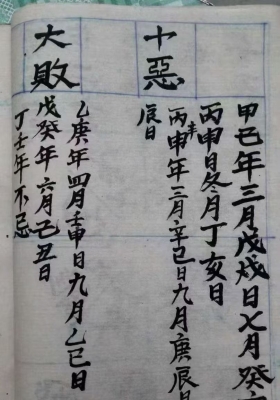 十惡
甲巳年三月戊戌日七月癸
丙申日冬月丁亥日
丙申年三月辛巳日九月庚辰日
辰日
大敗
乙庚年四月壬申日九月乙巳日
戊癸年六月己丑日
丁壬年不忌